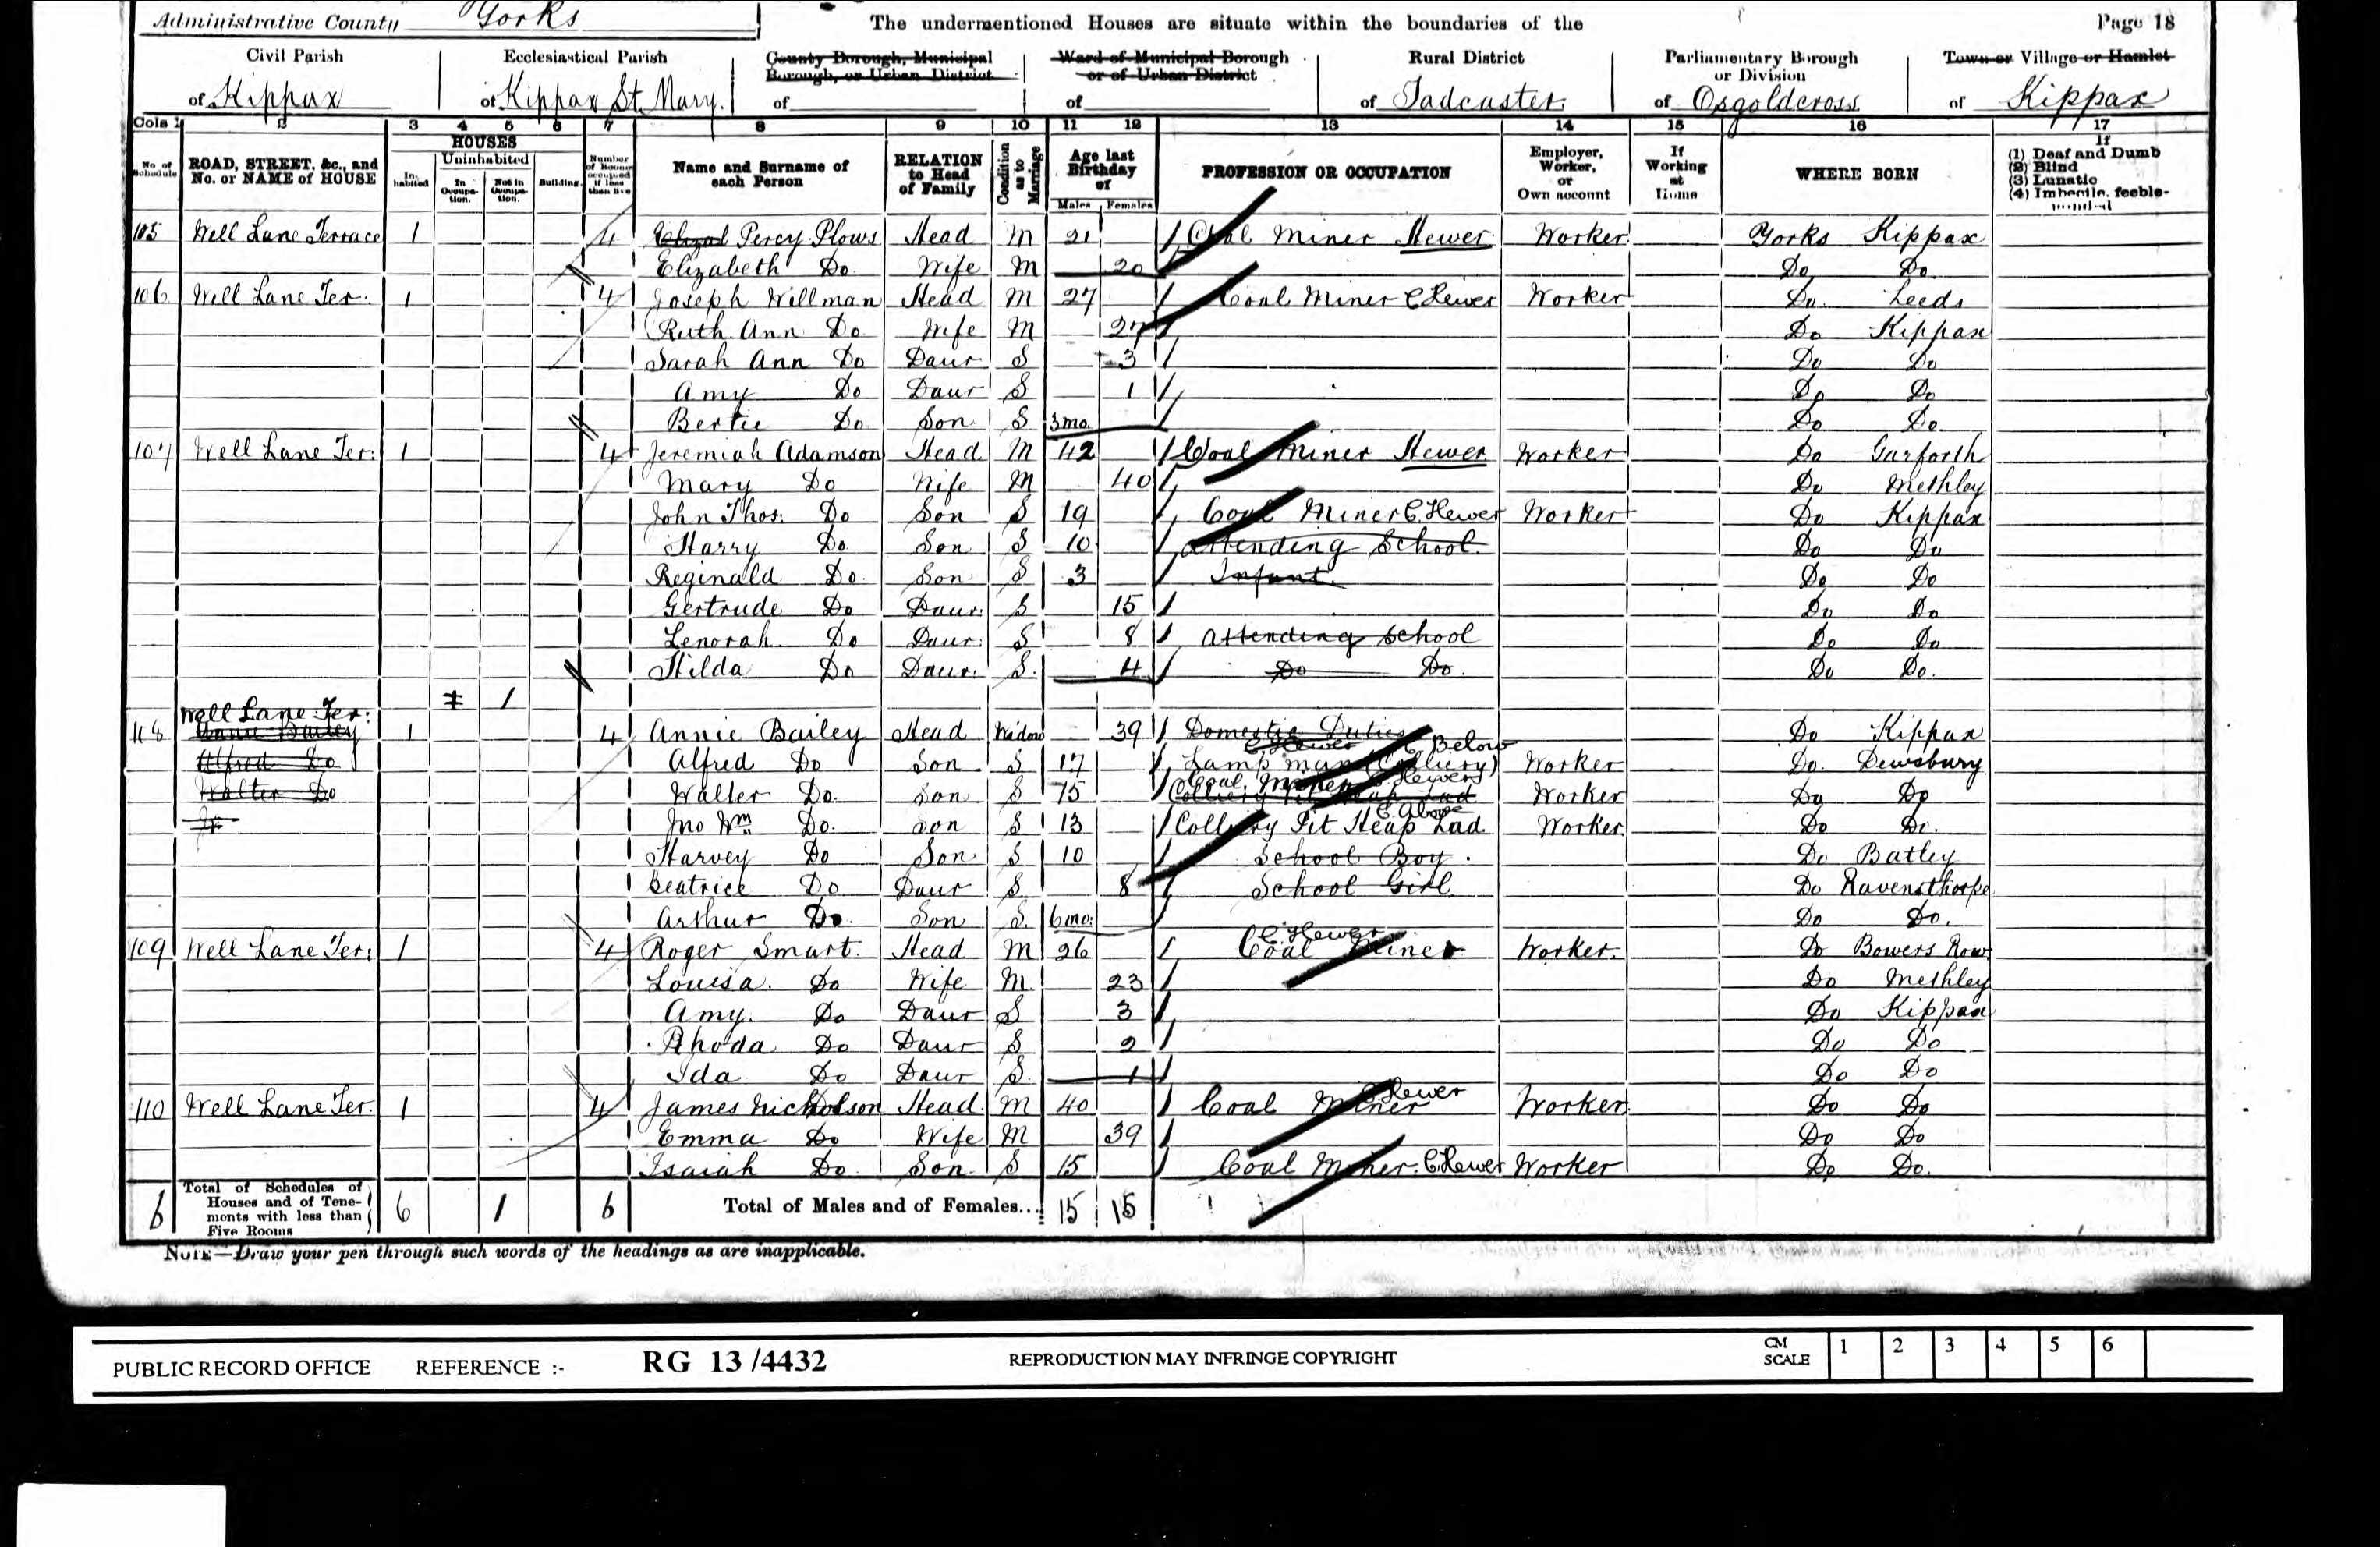 Administrative County Yorks The undermentioned Houses are situate within the boundaries of the Page 18
Civil Parish Ecclesiastical Parish County Borough, Municipal Borough, or Urban District Ward of Municipal Borough or of Urban District Rural District Parliamentary Borough or Division Town or Village or Hamlet
of Kippax of Kippax St. Mary. of of of Tadcaster. of Osgoldcross of Kippax
Cols 1 2 3 4 5 6 7 8 9 10 11 12 13 14 15 16 17
No. of Schedule ROAD, STREET, &c., and No. or NAME of HOUSE HOUSES Inhabited Uninhabited In Occupation. Not in Occupation. Building. Number of Rooms occupied if less than five Name and Surname of each Person RELATION to Head of Family Condition as to Marriage Age last Birthday of Males Females PROFESSION OR OCCUPATION Employer, Worker, or Own account If Working at Home WHERE BORN If (1) Deaf and Dumb (2) Blind (3) Lunatic (4) Imbecile, feeble-minded
105 Well Lane Terrace 1 4 Percy Plows Head M 21 Coal Miner Hewer Worker Yorks Kippax
Elizabeth Do Wife M 20 Do Do
106 Well Lane Ter. 1 4 Joseph Willman Head M 27 Coal Miner C Hewer Worker Do Leeds
Ruth Ann Do Wife M 27 Do Kippax
Sarah Ann Do Daur S 3 Do Do
Amy Do Daur S 1 Do Do
Bertie Do Son S 3mo. Do Do
107 Well Lane Ter: 1 4 Jeremiah Adamson Head M 42 Coal Miner Hewer Worker Do Garforth
Mary Do Wife M 40 Do Methley
John Thos: Do Son S 19 Coal Miner C. Hewer Worker Do Kippax
Harry Do Son S 10 Attending School Do Do
Reginald Do Son S 3 Infant Do Do
Gertrude Do Daur: S 15 Do Do
Lenorah Do Daur: S 8 Attending School Do Do
Hilda Do Daur: S. 4 Do Do. Do Do.
1
Well Lane Ter:
118 Annie Bailey 1 4 Annie Bailey Head Widow 39 Domestic Duties Do Kippax
C. Hewer C Below
Alfred Do Alfred Do Son S 17 Lamp man (Colliery) Worker Do. Dewsbury
Coal Miner C. Hewers
Walter Do Walter Do. Son S 15 Colliery Pit Heap Lad Worker Do Do
C. Above
Jno Wm Do. Son S 13 Colliery Pit Heap Lad. Worker. Do Do.
Harvey Do Son S 10 School Boy. Do Batley
Beatrice Do Daur S. 8 School Girl Do Ravensthorpe
Arthur Do. Son S. 6mo: Do Do.
C. Hewer
109 Well Lane Ter: 1 4 Roger Smart. Head M 26 Coal Miner Worker. Do Bowers Row.
Louisa. Do Wife M. 23 Do Methley
Amy. Do Daur S 3 Do Kippax
Rhoda Do Daur S 2 Do Do
Ida Do Daur S. 1 Do Do
C Hewer
110 Well Lane Ter. 1 4 James Nicholson Head. M 40 Coal Miner Worker Do Do
Emma Do Wife M 39 Do Do
Isaiah Do. Son. S 15 Coal Miner. C. Hewer Worker Do Do.
6 Total of Schedules of Houses and of Tenements with less than Five Rooms 6 1 6 Total of Males and of Females... 15 15
NOTE—Draw your pen through such words of the headings as are inapplicable.
PUBLIC RECORD OFFICE REFERENCE :- RG 13 /4432 REPRODUCTION MAY INFRINGE COPYRIGHT CM SCALE 1 2 3 4 5 6